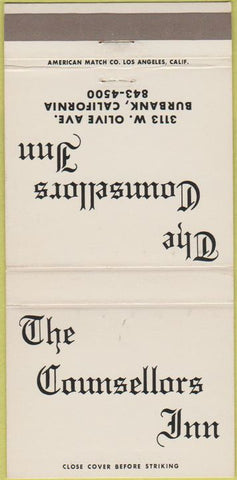 AMERICAN MATCH CO. LOS ANGELES, CALIF.
The
Counsellors
Inn
3113 W. OLIVE AVE.
BURBANK, CALIFORNIA
843-4500
The
Counsellors
Inn
CLOSE COVER BEFORE STRIKING